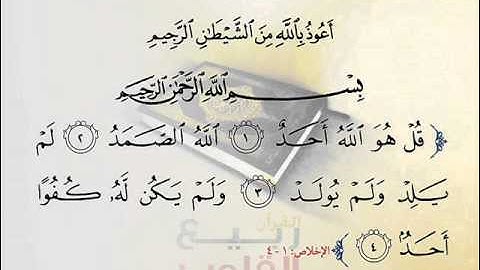 أَعُوذُ بِاللَّهِ مِنَ الشَّيْطَانِ الرَّجِيمِ
بِسْمِ اللَّهِ الرَّحْمَٰنِ الرَّحِيمِ
﴿ قُلْ هُوَ ٱللَّهُ أَحَدٌ ١ ٱللَّهُ ٱلصَّمَدُ ٢ لَمْ
يَلِدْ وَلَمْ يُولَدْ ٣ وَلَمْ يَكُن لَّهُۥ كُفُوًا
أَحَدٌۢ ٤ ﴾ الإخلاص: ١ - ٤
القرآن
ربيع
القلوب